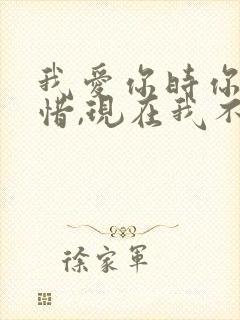 我愛你時你
惜,現在我不
徐家軍